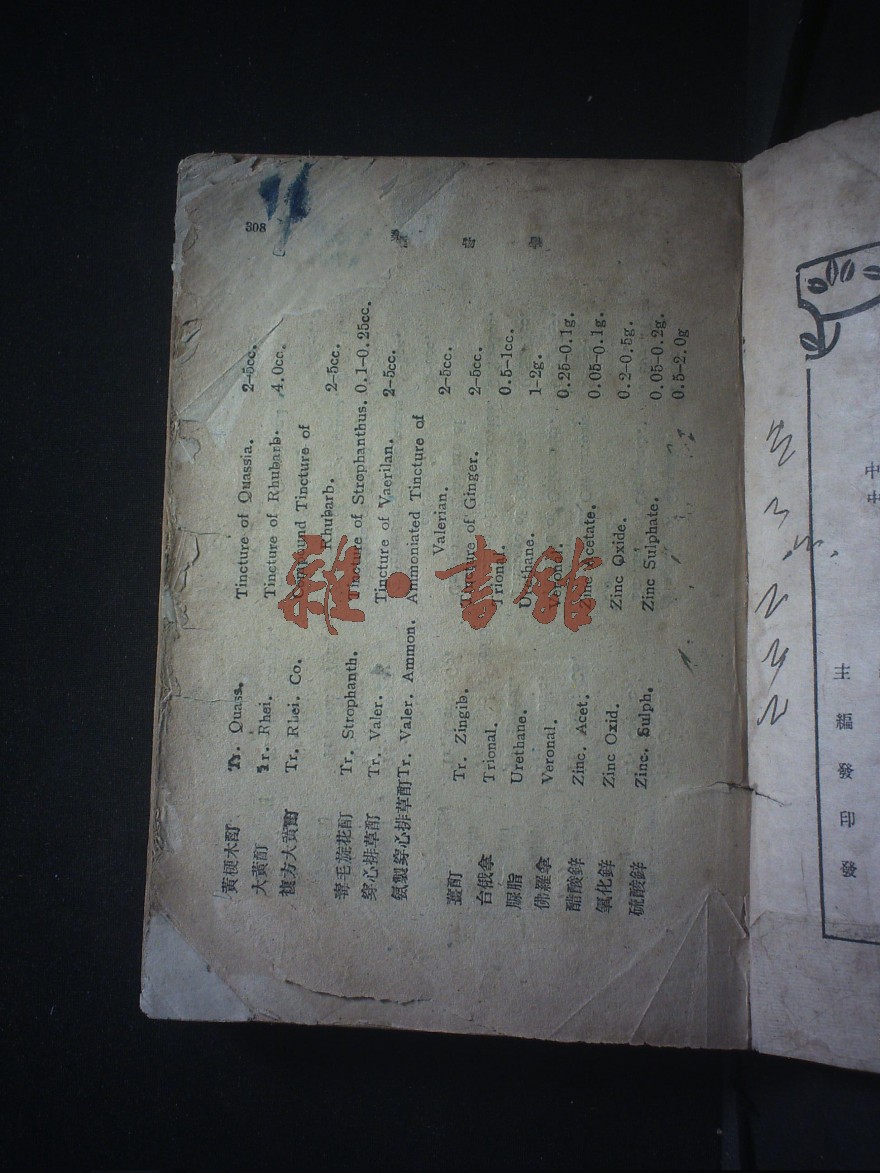 308
黄梗木酊 Tr. Quass. Tincture of Quassia. 2-5cc.
大黄酊 Tr. Rhei. Tincture of Rhubarb. 4.0cc.
複方大黄酊 Tr. Rhei. Co. Compound Tincture of
Rhubarb. 2-5cc.
毒毛旋花酊 Tr. Strophanth. Tincture of Strophanthus. 0.1-0.25cc.
穿心排草酊 Tr. Valer. Tincture of Vaerilan. 2-5cc.
氨製穿心排草酊 Tr. Valer. Ammon. Ammoniated Tincture of
Valerian. 2-5cc.
薑酊 Tr. Zingib. Tincture of Ginger. 2-5cc.
台俄拿 Trional. Trional. 0.5-1cc.
脲脂 Urethane. Urethane. 1-2g.
佛羅拿 Veronal. Veronal. 0.25-0.1g.
醋酸鋅 Zinc. Acet. Zinc Acetate. 0.05-0.1g.
氧化鋅 Zinc Oxid. Zinc Oxide. 0.2-0.5g.
硫酸鋅 Zinc. Sulph. Zinc Sulphate. 0.05-0.2g.
0.5-2.0g
主
編
發
印
發